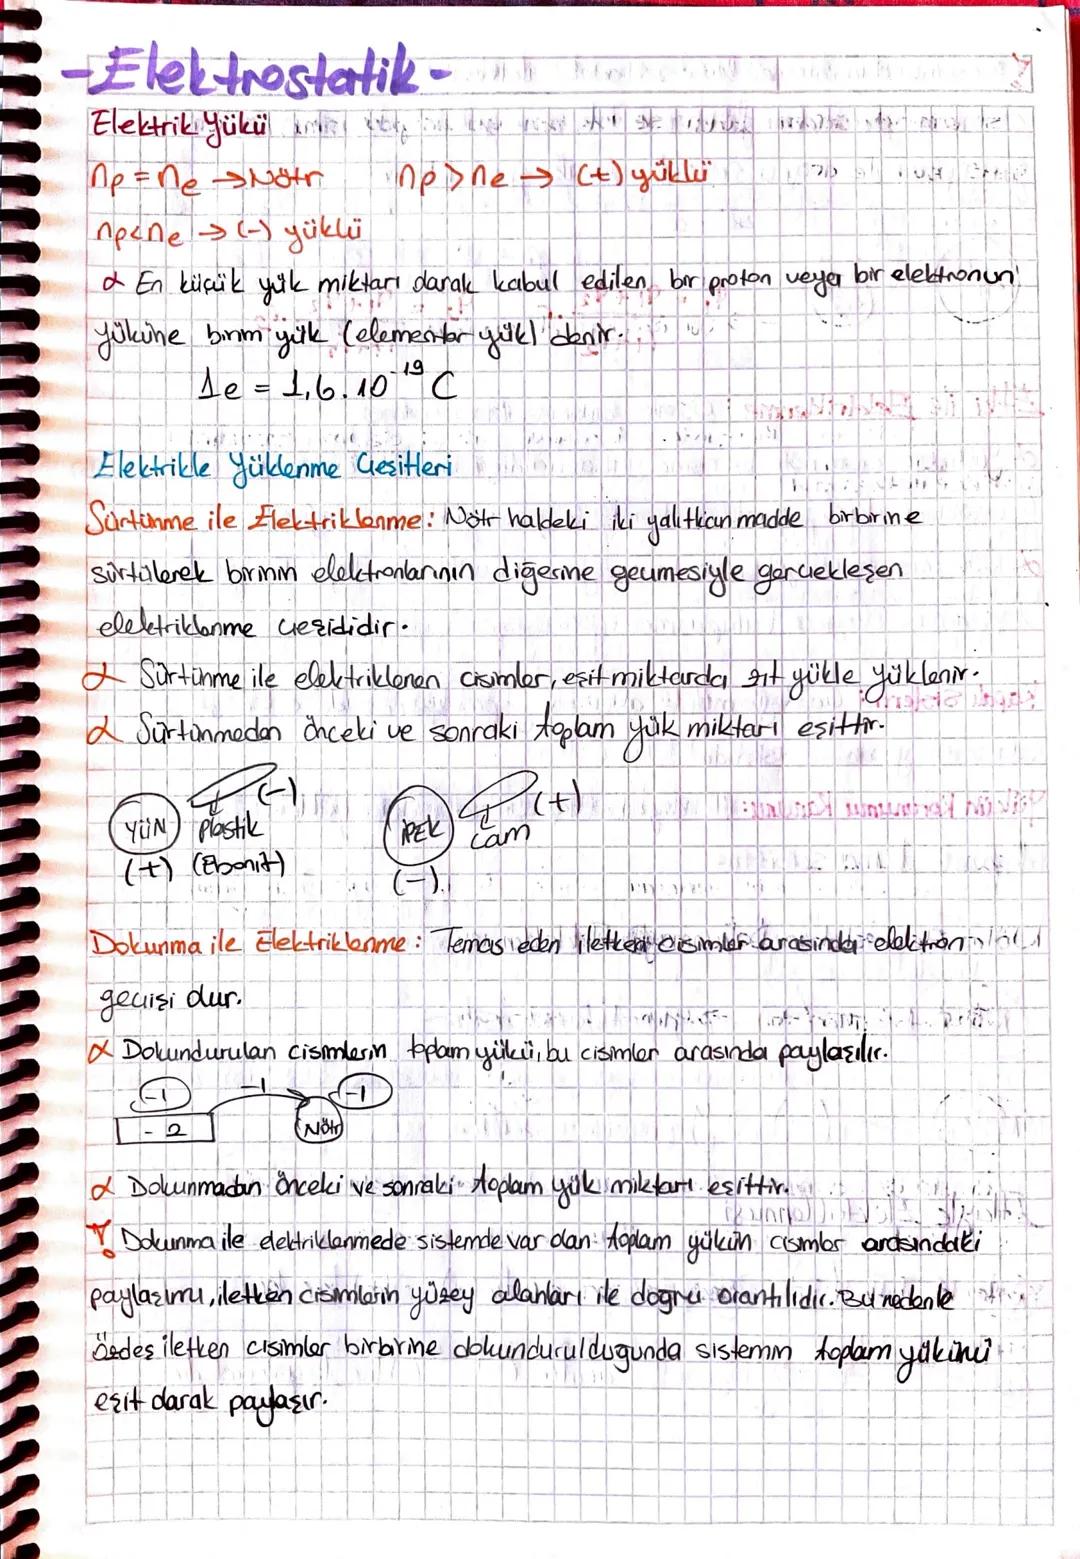 -Elektrostatik-
Elektrik Yükü
np = ne → Nötr np > ne → (+) yüklü
np < ne → (-) yüklü
α En küçük yük miktarı olarak kabul edilen, bir proton veya bir elektronun
yüküne birim yük (elementer yük) denir.
1e = 1,6.10⁻¹⁹ C
Elektrikle Yüklenme Çeşitleri
Sürtünme ile Elektriklenme: Nötr haldeki iki yalıtkan madde birbirine
sürtülerek birinin elektronlarının diğerine geçmesiyle gerçekleşen
elektriklenme çeşididir.
α Sürtünme ile elektriklenen cisimler, eşit miktarda zıt yükle yüklenir.
α Sürtünmeden önceki ve sonraki toplam yük miktarı eşittir.
(-) (+)
YÜN plastik İPEK cam
(+) (Ebonit) (-)
Dokunma ile Elektriklenme: Temas eden iletken cisimler arasında elektron
geçişi dur.
α Dokundurulan cisimlerin toplam yükü, bu cisimler arasında paylaşılır.
-1 -1 -1
-2 Nötr
α Dokunmadan önceki ve sonraki toplam yük miktarı eşittir.
! Dokunma ile elektriklenmede sistemde var olan toplam yükün cisimler arasındaki
paylaşımı, iletken cisimlerin yüzey alanları ile doğru orantılıdır. Bu nedenle
özdeş iletken cisimler birbirine dokundurulduğunda sistemin toplam yükünü
eşit olarak paylaşır.